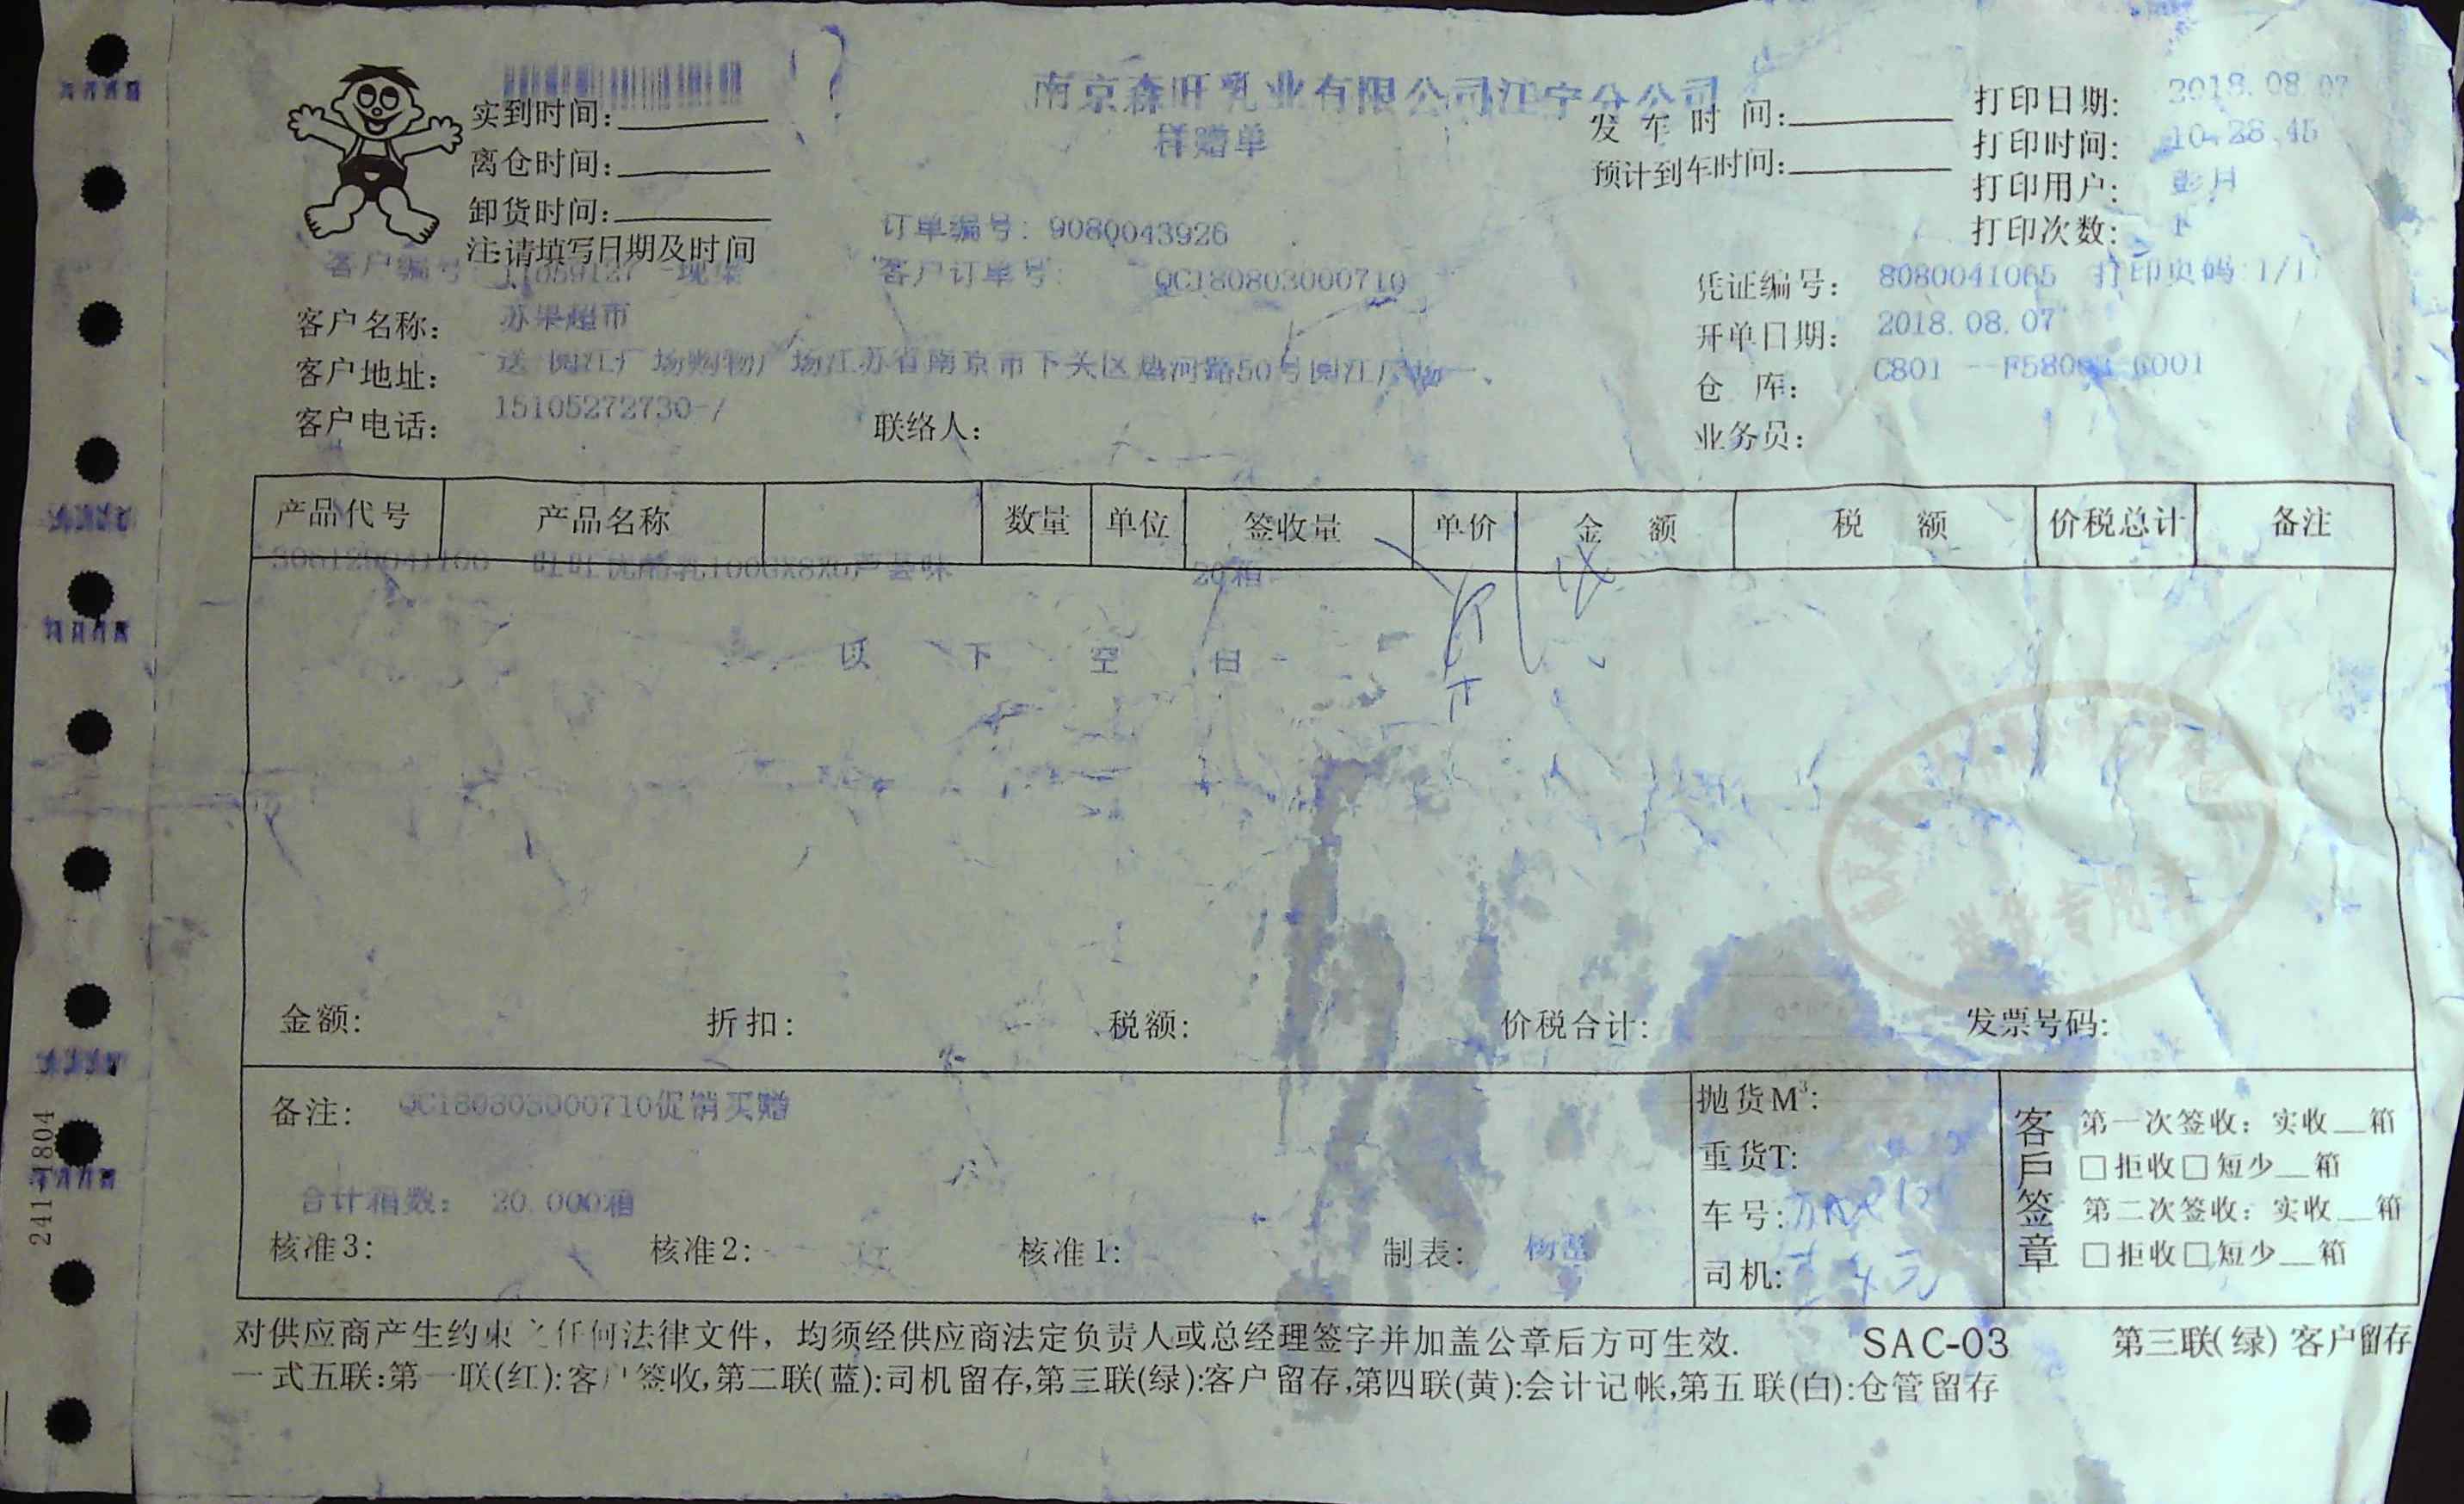 南京森旺乳业有限公司江宁分公司
样赠单
实到时间:
离仓时间:
卸货时间:
注:请填写日期及时间
发车时间:
预计到车时间:
打印日期: 2018.08.07
打印时间: 10.28.45
打印用户: 彭月
打印次数: 1
订单编号: 9080043926
客户编号 11059127
客户订单号: QC180803000710
凭证编号: 8080041065 打印页码:1/1
客户名称: 苏果超市
开单日期: 2018.08.07
客户地址: 送 阅江广场购物广场江苏省南京市下关区热河路50号阅江广场一、
仓 库: C801
客户电话: 15105272730-/
联络人:
业务员:
产品代号 产品名称 数量 单位 签收量 单价 金 额 税 额 价税总计 备注
旺旺优酪乳100GX8X6芦荟味 20箱
以 下 空 白
金额: 折扣: 税额: 价税合计: 发票号码:
备注: QC180803000710促销买赠
合计箱数: 20.000箱
核准3: 核准2: 核准1: 制表:
抛货M³:
重货T:
车号:
司机:
客户签章
第一次签收: 实收__箱
□拒收□短少__箱
第二次签收: 实收__箱
□拒收□短少__箱
对供应商产生约束之任何法律文件，均须经供应商法定负责人或总经理签字并加盖公章后方可生效. SAC-03 第三联(绿) 客户留存
一式五联:第一联(红):客户签收,第二联(蓝):司机留存,第三联(绿):客户留存,第四联(黄):会计记帐,第五联(白):仓管留存
241-1804